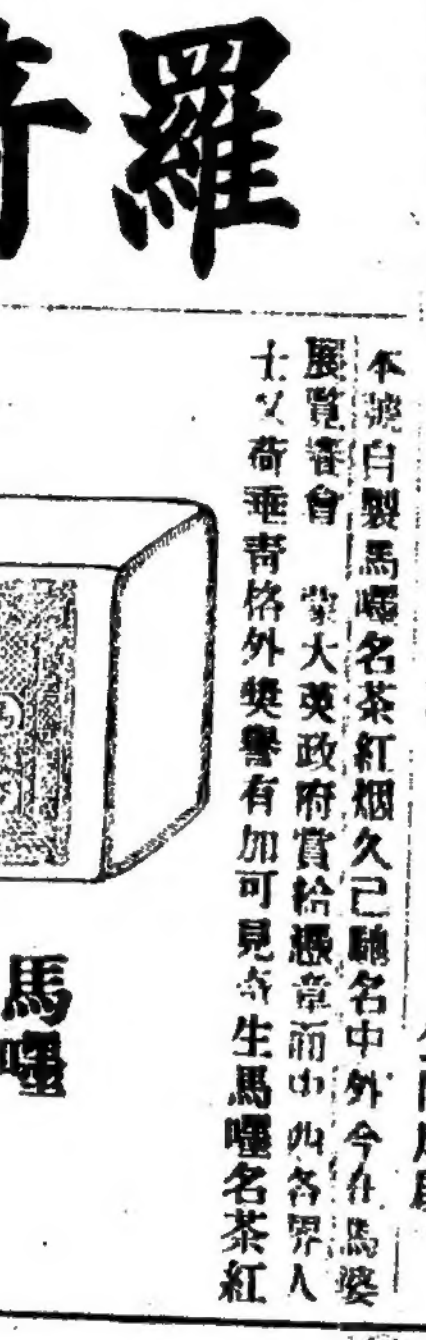 羅奇
本號自製馬嚜名茶紅烟久已馳名中外今在馬婆
展覽會 蒙大英政府賞給憑章而中西各界人
士又荷垂青格外奬譽有加可見奇生馬嚜名茶紅
馬嚜